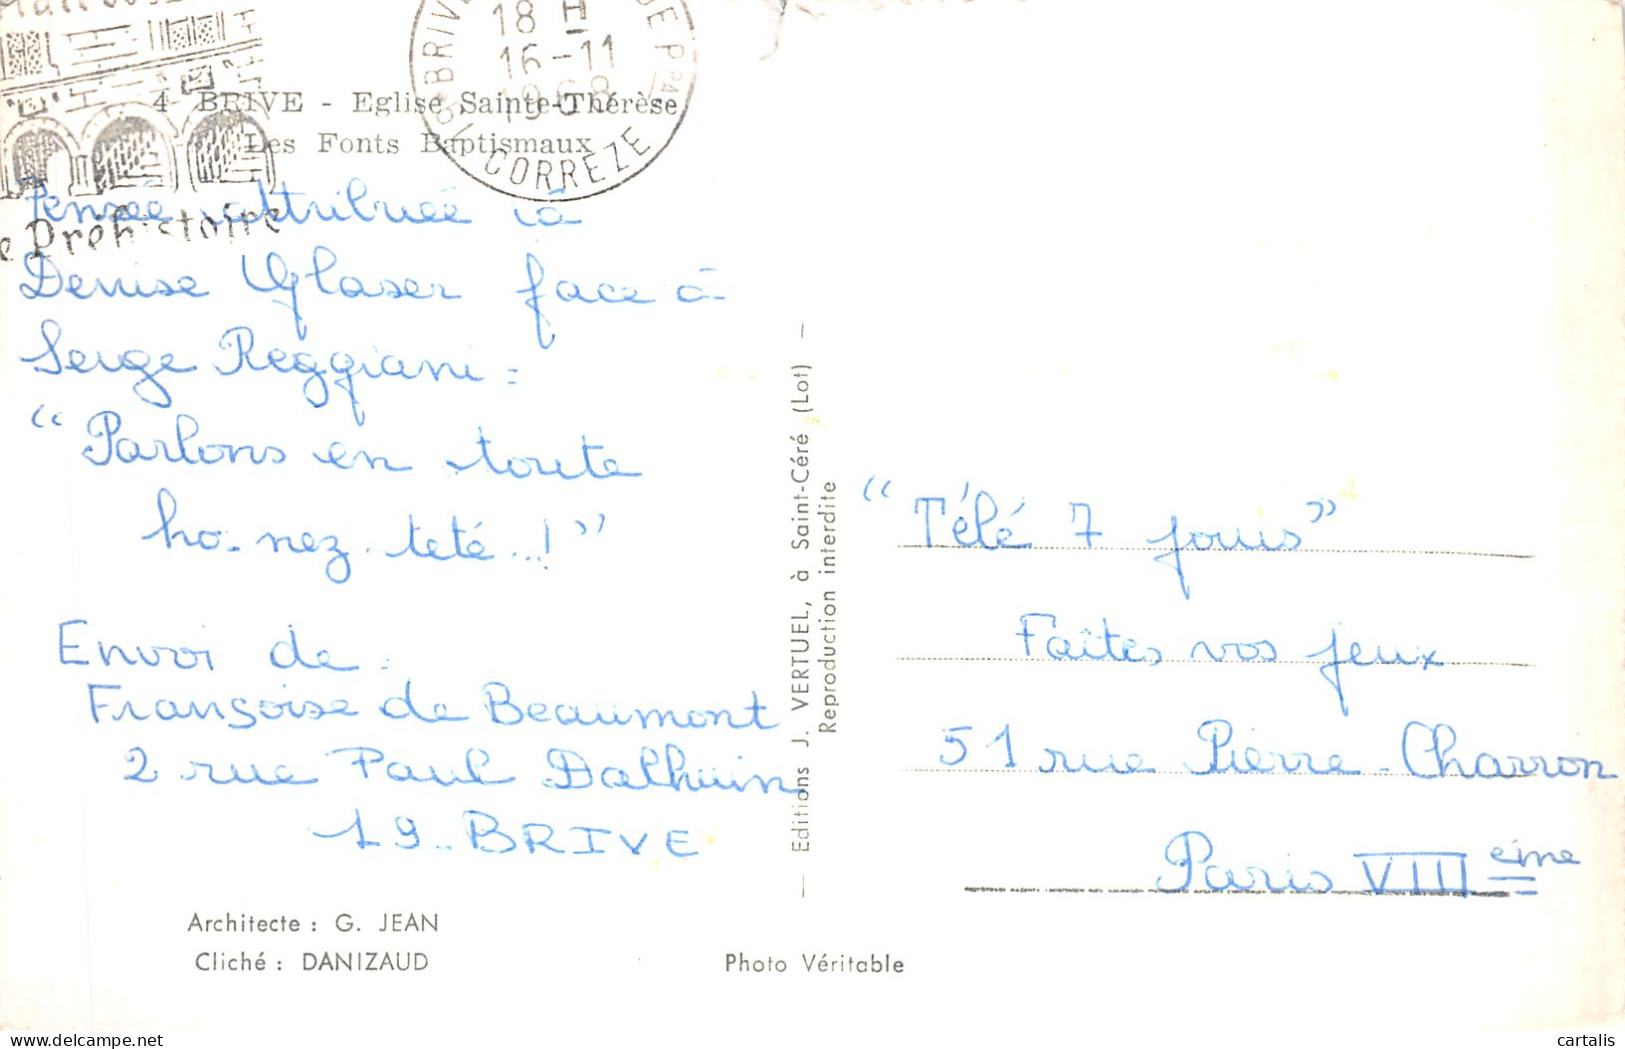 18 H
16-11
1968
BRIVE
CORREZE
Préhistoire
4 BRIVE - Eglise Sainte-Thérèse
Les Fonts Baptismaux
Pensée attribuée à
Denise Glaser face à
Serge Reggiani :
“Parlons en toute
ho-nez-teté...!”
Envoi de :
Françoise de Beaumont
2 rue Paul Dalhuin
19.. BRIVE
Architecte : G. JEAN
Cliché : DANIZAUD
Photo Véritable
— Editions J. VERTUEL, à Saint-Céré (Lot) —
Reproduction interdite
“Télé 7 jours”
Faîtes vos jeux
51 rue Pierre-Charron
Paris VIII eme
cartalis